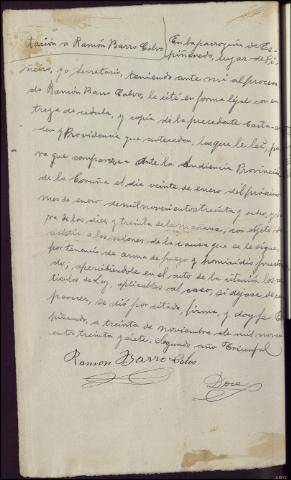 tación a Ramón Barro Calvo
En la parroquia de Es-
piñaredo, lugar de Pi-
ñeiro, yo, Secretario, teniendo ante mí al procesa-
do Ramón Barro Calvo, le cité en forma legal con en-
trega de cédula, y copia de la precedente Carta-or-
den y Providencia que anteceden, las que le leí, pa-
ra que comparezca ante la Audiencia Provincial
de la Coruña el día veinte de enero del próximo
mes de enero de mil novecientos treinta y ocho, y ho-
ra de las diez y treinta de la mañana, con objeto de
asistir a las sesiones de la causa que se le sigue
por tenencia de arma de fuego y homicidio frustra-
do; apercibiéndole en el acto de la citación los ar-
tículos de Ley, aplicables al caso, si dejase de com-
parecer, se dió por citado, firma, y doy fe. Es-
piñaredo, a treinta de noviembre de mil noveci-
entos treinta y siete. Segundo año Triunfal
Ramón Barro Calvo
Doce